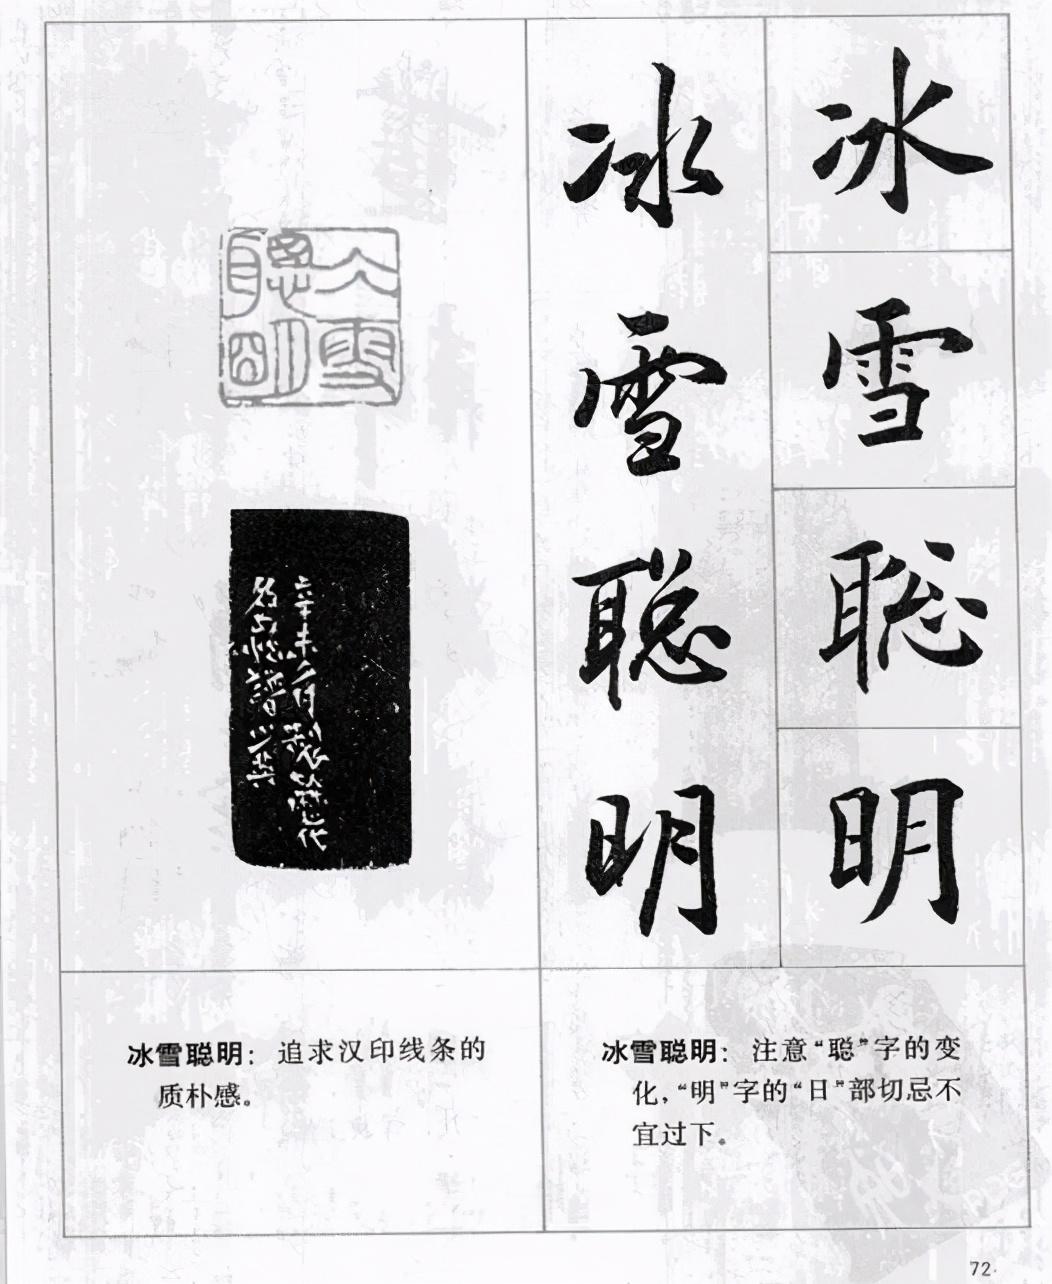 冰雪聪明
冰雪聪明
仌雪
聰明
辛未
冰雪聪明：追求汉印线条的
质朴感。
冰雪聪明：注意“聪”字的变
化，“明”字的“日”部切忌不
宜过下。
72